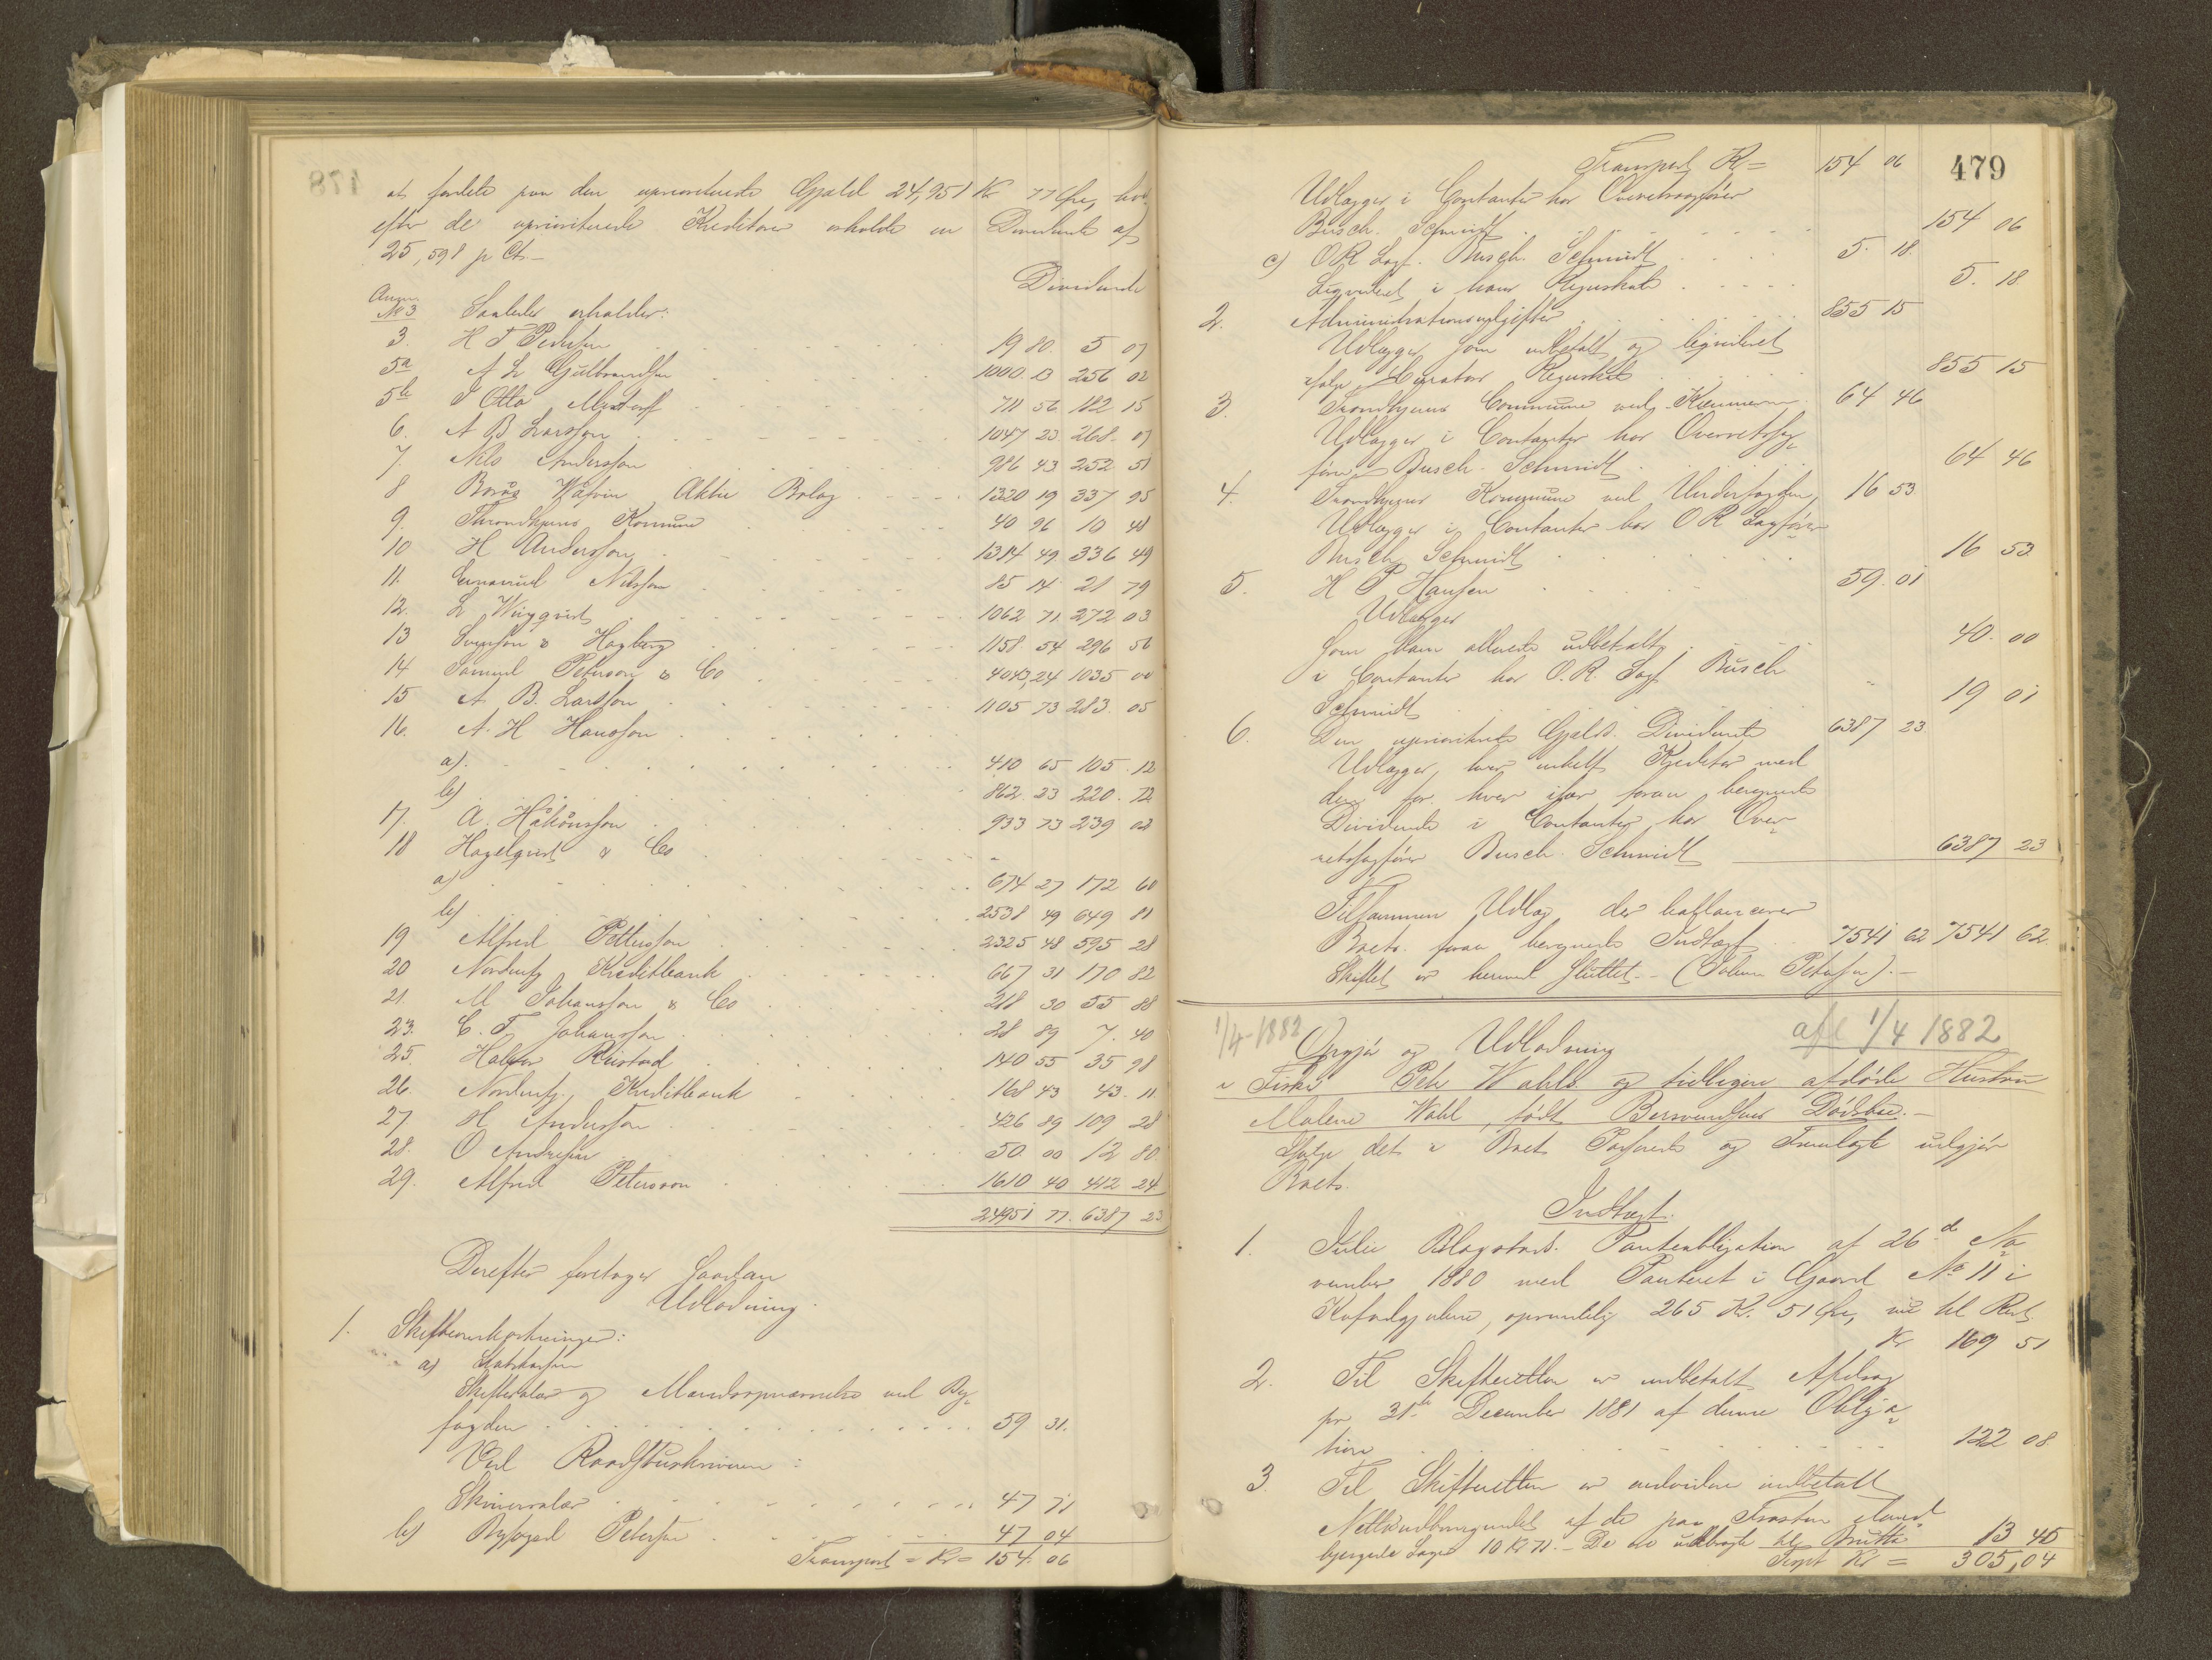 at fordele paa den uprioriterede Gjæld 24,951 Kr 77 Øre, hvor
efter de uprioriterede Kreditorer erholde en Dividende af
25,598 p Ct. –
Dividende
Anm.
No 3 Saaledes erholder:
3. H F Pedersen 19 80. 5 07
5a A L Gulbrandsen 1000. 13 256 02
5b J Otto 711 56. 182 15
6. A B Larsson 1047 23. 268. 07
7. Nils Andersson 986 43 252 51
8 Borås Wäfveri Aktie Bolag 1320 19 337 95
9. Throndhjems Kommune 40 96 10 48
10 H Andersson 1314 49. 336 49
11. Emanuel Nilsson 85 14 21 79
12. L Wingqvist 1062 71. 272 03
13 Svensson & Hagberg 1158. 54 296 56
14 Samuel Peterson & Co 4043,24 1035 00
15 A B. Larsson 1105 73 283. 05
16. A. H Hansson
a) 410 65 105. 12
b) 862. 23 220. 72
17. A. Håkansson 933 73 239 02
18 Hagelqvist & Co
a) 674 27 172 60
b) 2538 49 649 81
19 Alfred Pettersson 2325 48 595 28
20 Nordenfj Kreditbank 667 31 170 82
21. M Johansson & Co 218 30 55 88
23. C. F. Johansson 28 89 7. 40
25. Halvor Rustad 140 55 35 98
26. Nordenfj. Kreditbank 168 43 43. 11
27. H Andersson 426 89 109 28
28. O Andresen 50. 00 12 80
29. Alfred Peterson 1610 40 412 24
24951 77. 6387 23
Derefter foretages saadan
Udlodning.
1. Skifteomkostninger:
a) Statskassen
Skiftesalær og Mandsopnævnelse ved By-
fogden 59 31.
Ved Raadstuskriveren:
Skriversalær 47 71
b) Byfoged Petersen 47 04
Transport = Kr = 154. 06
479
Transport Kr = 154 06
Udlægges i Contanter hos Overretssagfører
Busch. Schmidt 154 06
c) O R Sagf. Busch. Schmidt 5. 18.
Liqvideret i hans Regnskab 5. 18.
2. Administrationsudgifter 855 15
Udlægges som udbetalt og liqvideret
ifølge Curators Regnskab 855 15
3. Trondhjems Commune ved Kæmneren 64 46
Udlægges i Contanter hos Overretssag-
fører Busch. Schmidt 64 46
4. Trondhjems Kommune ved Underfogden 16 53.
Udlægges i Contanter hos O R Sagfører
Busch Schmidt 16 53
5. H P Hansen 59. 01
Udlægges
som ham allerede udbetalt 40. 00
i Contanter hos O. R. Sagf Busch
Schmidt 19 01
6. Den uprioriterede Gjælds Dividende 6387 23.
Udlægges hver enkelt Kreditor med
den for hver især foran beregnede
Dividende i Contanter hos Over-
retssagfører Busch. Schmidt 6387 23
Tilsammen Udlæg, der ballancerer
Boets foran beregnede Indtægt 7541 62 7541 62.
Skiftet er hermed sluttet. – (Johan Petersen). –
1/4-1882 afl 1/4 1882
Opgjør og Udlodning
i Fisker Peter Wahls og tidligere afdøde Hustru
Malene Wahl, født Bersvendsens Dødsbo. –
Ifølge det i Boet Passerede og Fremlagte udgjør
Boets
Indtægt.
1. Julie Blogstads Panteobligation af 26de No-
vember 1880 med Panteret i Gaard No 11 i
oprindelig 265 Kr. 51 Øre, nu til Rest
Kr 169 51
2. Til Skifteretten er indbetalt Afdrag
pr 31te December 1881 af denne Obliga-
tion 122 08
3. Til Skifteretten er endvidere indbetalt
Nettoudbringendet af de paa
Sager 10 Kr 71. – De ere udbragte til Brutto 13 45
Trspt Kr = 305,04